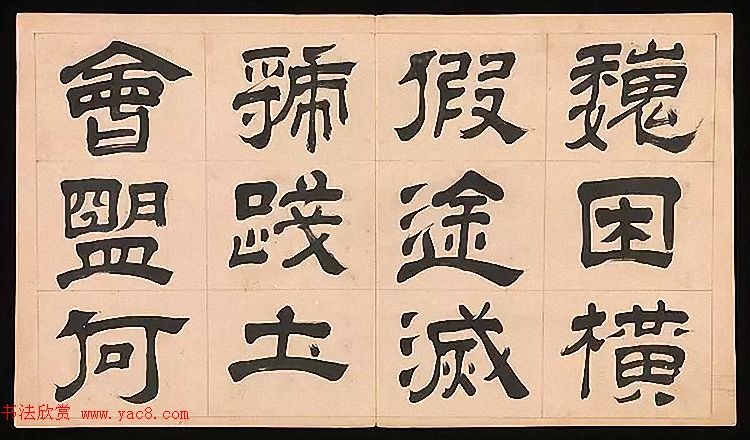 魏困橫
假途滅
虢踐土
會盟何
书法欣赏 www.yac8.com